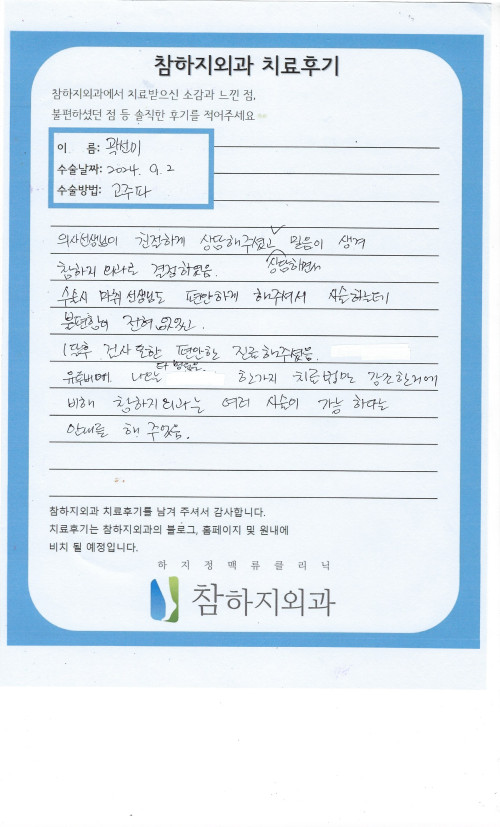 참하지외과 치료후기
참하지외과에서 치료받으신 소감과 느낀 점,
불편하셨던 점 등 솔직한 후기를 적어주세요
이 름: 곽선이
수술날짜: 2024. 9. 2
수술방법: 고주파
의사선생님이 친절하게 상담해주셨고 믿음이 생겨
상담하면서
참하지 외과로 결정하였음.
수술시 마취 선생님도 편안하게 해주셔서 시술하는데
불편함이 전혀 없었고.
1달후 검사 또한 편안한 진료해주셨음.
다 병원은
유튜버에 나오는 한가지 치료법만 강조한거에
비해 참하지외과는 여러 시술이 가능 하다는
안내를 해 주었음.
참하지외과 치료후기를 남겨 주셔서 감사합니다.
치료후기는 참하지외과의 블로그, 홈페이지 및 원내에
비치 될 예정입니다.
하지정맥류클리닉
참하지외과